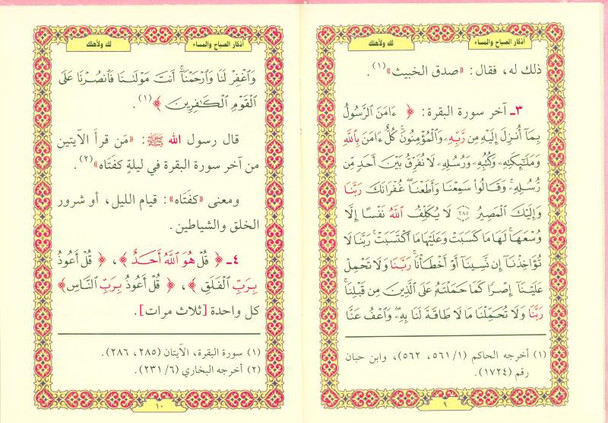 أذكار الصباح والمساء
لك ولأهلك
ذلك له، فقال: «صدق الخبيث»(١).
٣ـ آخر سورة البقرة: ﴿ ءَامَنَ ٱلرَّسُولُ
بِمَآ أُنزِلَ إِلَيْهِ مِن رَّبِّهِۦ وَٱلْمُؤْمِنُونَ كُلٌّ ءَامَنَ بِٱللَّهِ
وَمَلَٰٓئِكَتِهِۦ وَكُتُبِهِۦ وَرُسُلِهِۦ لَا نُفَرِّقُ بَيْنَ أَحَدٍ مِّن
رُّسُلِهِۦ وَقَالُوا۟ سَمِعْنَا وَأَطَعْنَا غُفْرَانَكَ رَبَّنَا
وَإِلَيْكَ ٱلْمَصِيرُ ٢٨٥ لَا يُكَلِّفُ ٱللَّهُ نَفْسًا إِلَّا
وُسْعَهَا لَهَا مَا كَسَبَتْ وَعَلَيْهَا مَا ٱكْتَسَبَتْ رَبَّنَا لَا
تُؤَاخِذْنَآ إِن نَّسِينَآ أَوْ أَخْطَأْنَا رَبَّنَا وَلَا تَحْمِلْ
عَلَيْنَآ إِصْرًا كَمَا حَمَلْتَهُۥ عَلَى ٱلَّذِينَ مِن قَبْلِنَا
رَبَّنَا وَلَا تُحَمِّلْنَا مَا لَا طَاقَةَ لَنَا بِهِۦ وَٱعْفُ عَنَّا
(١) أخرجه الحاكم (٥٦١/١، ٥٦٢)، وابن حبان
رقم (١٧٢٤).
٩
أذكار الصباح والمساء
لك ولأهلك
وَٱغْفِرْ لَنَا وَٱرْحَمْنَآ أَنتَ مَوْلَىٰنَا فَٱنصُرْنَا عَلَى
ٱلْقَوْمِ ٱلْكَٰفِرِينَ ﴾(١).
قال رسول الله ﷺ: «مَن قرأ الآيتين
من آخر سورة البقرة في ليلةٍ كفتَاه»(٢).
ومعنى «كفتَاه»: قيام الليل، أو شرور
الخلق والشياطين.
٤ـ ﴿ قُلْ هُوَ ٱللَّهُ أَحَدٌ ﴾، ﴿ قُلْ أَعُوذُ
بِرَبِّ ٱلْفَلَقِ ﴾، ﴿ قُلْ أَعُوذُ بِرَبِّ ٱلنَّاسِ ﴾
كل واحدة [ثلاث مرات].
(١) سورة البقرة، الآيتان (٢٨٥، ٢٨٦).
(٢) أخرجه البخاري (٢٣١/٦).
١٠